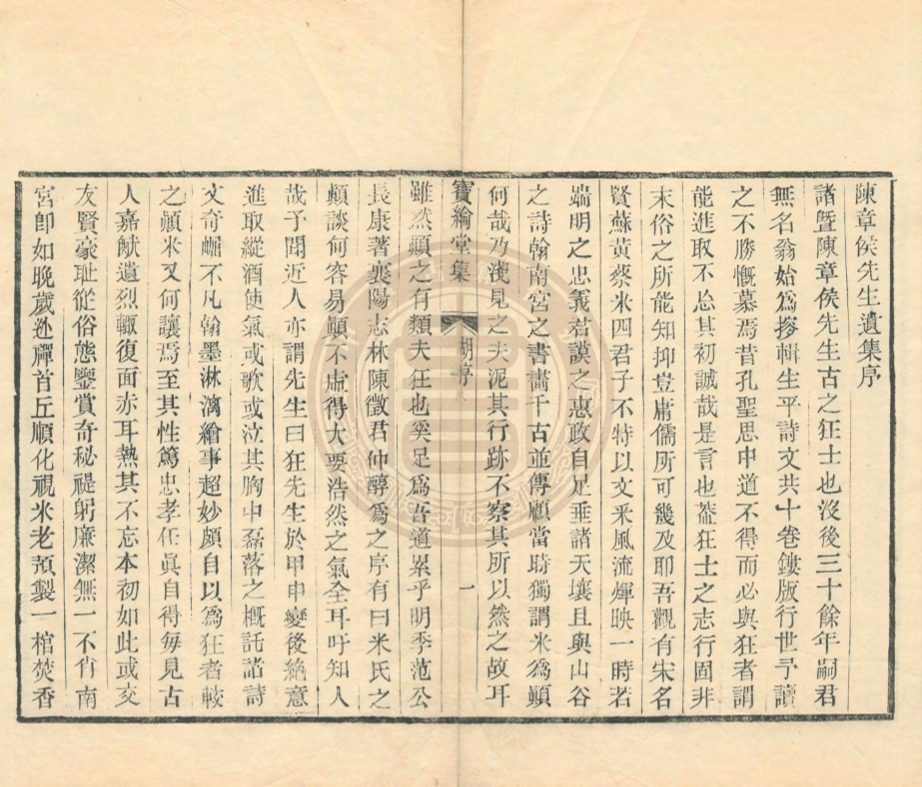 陳章侯先生遺集序
諸曁陳章侯先生古之狂士也沒後三十餘年嗣君
無名翁始爲搜輯生平詩文共十卷鏤版行世予讀
之不勝慨慕焉昔孔聖思中道不得而必與狂者謂
能進取不忘其初誠哉是言也葢狂士之志行固非
末俗之所能知抑豈庸儒所可幾及耶吾觀有宋名
賢蘇黃蔡米四君子不特以文采風流煇映一時若
端明之忠義君謨之惠政自足垂諸天壤且與山谷
之詩翰南宮之書畵千古並傳顧當時獨謂米爲顚
何哉乃淺見之夫泥其行跡不察其所以然之故耳
寶綸堂集
胡序
一
雖然顚之有類夫狂也奚足爲吾道累乎明季范公
長康著襄陽志林陳徵君仲醇爲之序有曰米氏之
顚談何容易顚不虛得大要浩然之氣全耳吁知人
哉予聞近人亦謂先生曰狂先生於甲申變後絶意
進取縱酒使氣或歌或泣其胸中磊落之槪託諸詩
文奇崛不凡翰墨淋漓繪事超妙頗自以爲狂者較
之顚米又何讓焉至其性篤忠孝任眞自得每見古
人嘉猷遺烈輙復面赤耳熱其不忘本初如此或交
友賢豪耻從俗態鑒賞奇秘禔躬廉潔無一不肖南
宮卽如晚歲逃禪首丘順化視米老預製一棺焚香